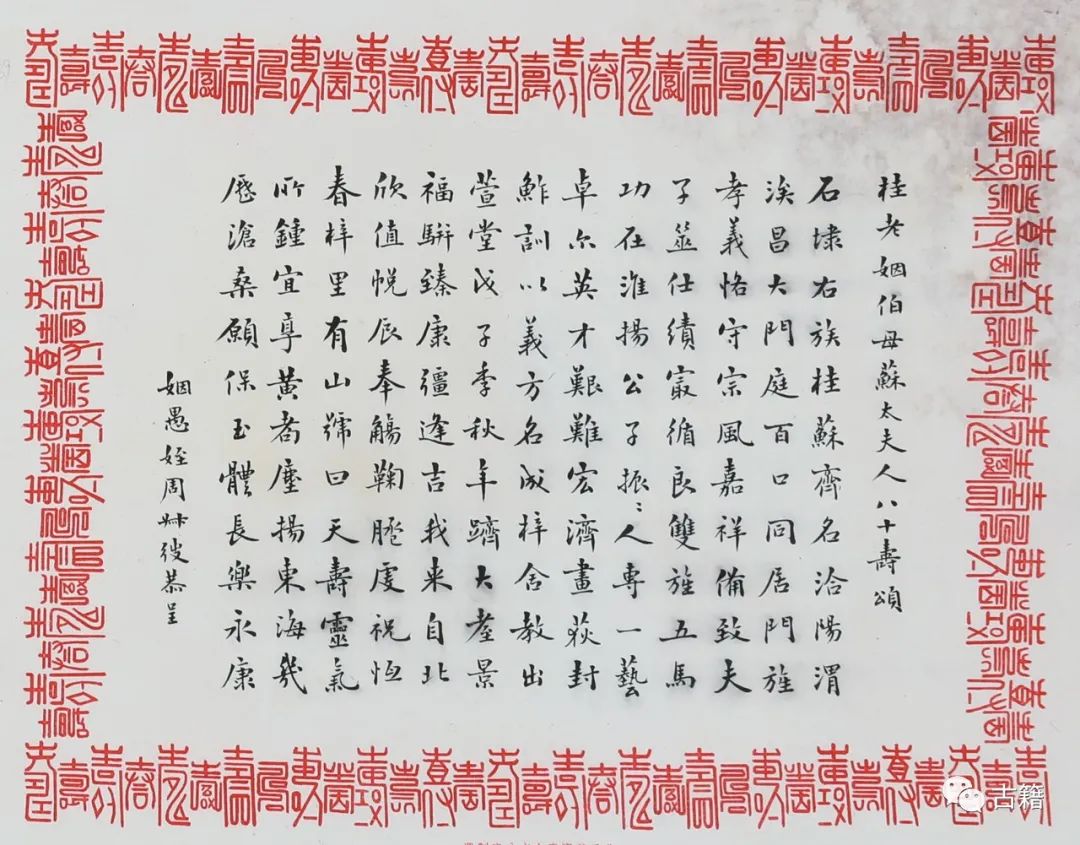 桂老姻伯母蘇太夫人八十壽頌
石埭右族桂蘇齊名洽陽渭
涘昌大門庭百口同居門旌
孝義恪守宗風嘉祥備致夫
子筮仕績寂循良雙旌五馬
功在淮揚公子振〻人專一藝
卓尒英才艱難宏濟畫荻封
鮓訓以義方名成梓舍教出
萱堂戊子季秋年躋大耋景
福駢臻康彊逢吉我来自北
欣值悅辰奉觴鞠䠆虔祝恆
春梓里有山號曰天壽靈氣
所鍾宜享黃耇塵揚東海幾
歷滄桑願保玉體長樂永康
姻愚姪周叔弢恭呈
古籍